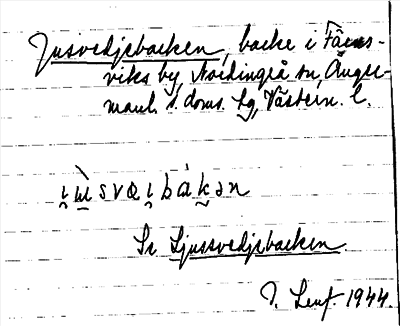 Jusvedjebacken, backe i Fäens-
viks by, Nordingrå sn, Ånger-
manl. s. doms. lg, Västern. l.
i̯ùsvæi̯bákən
Se Ljussvedjebacken
1944.